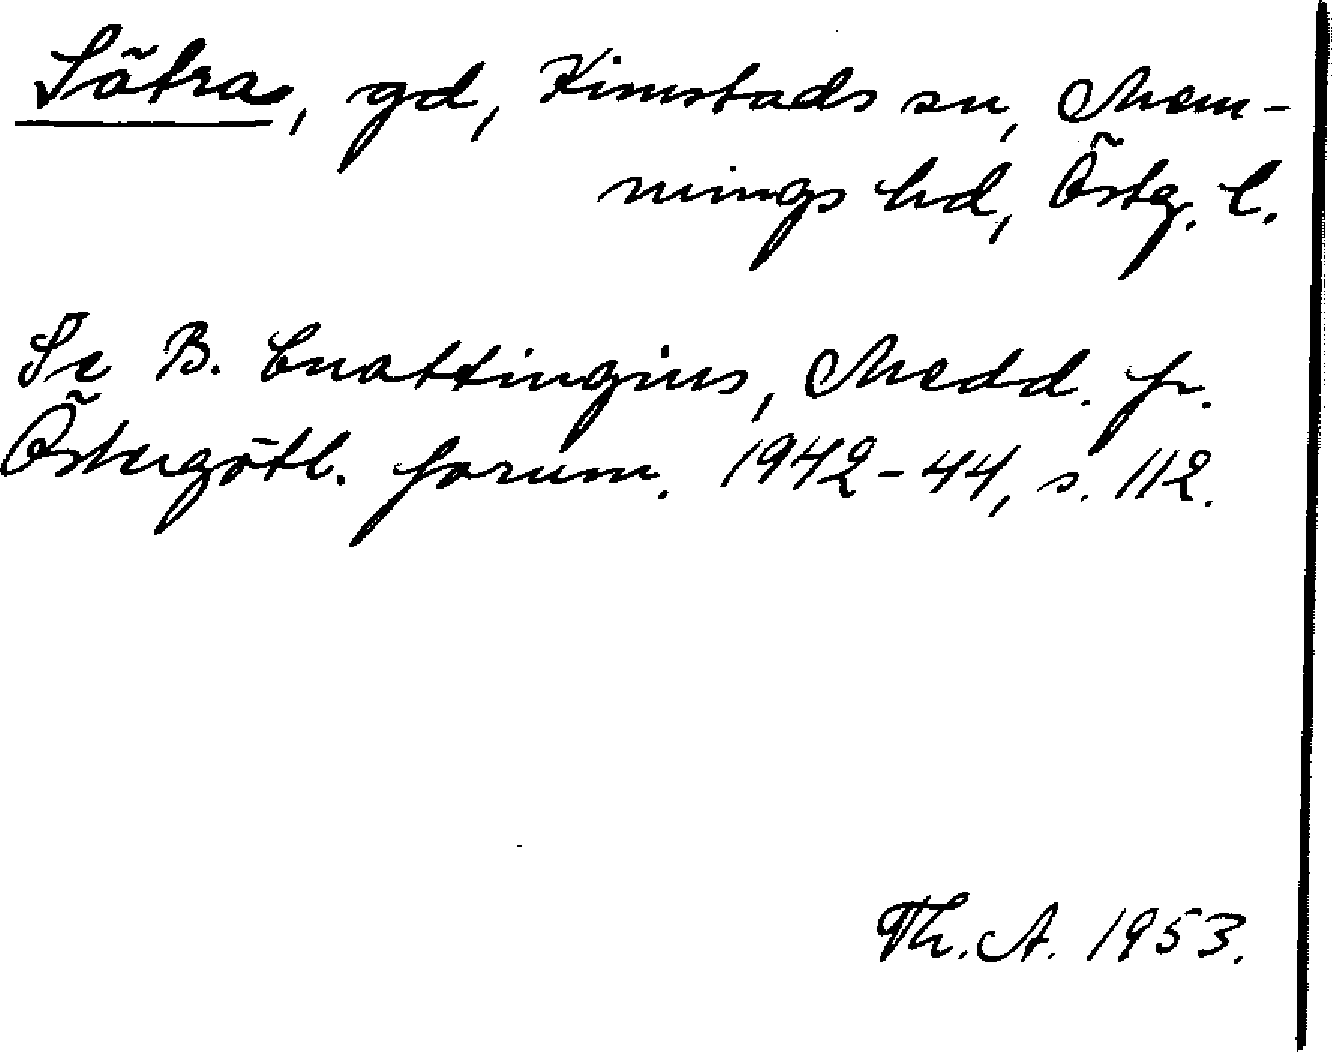 Sätra, gd, Kimstads sn, Mem-
mings hd, Östg. l.
Se B. Cnattingius, Medd. fr.
Östergötl. fornm. 1942-44, s. 112.
Th. A. 1953.